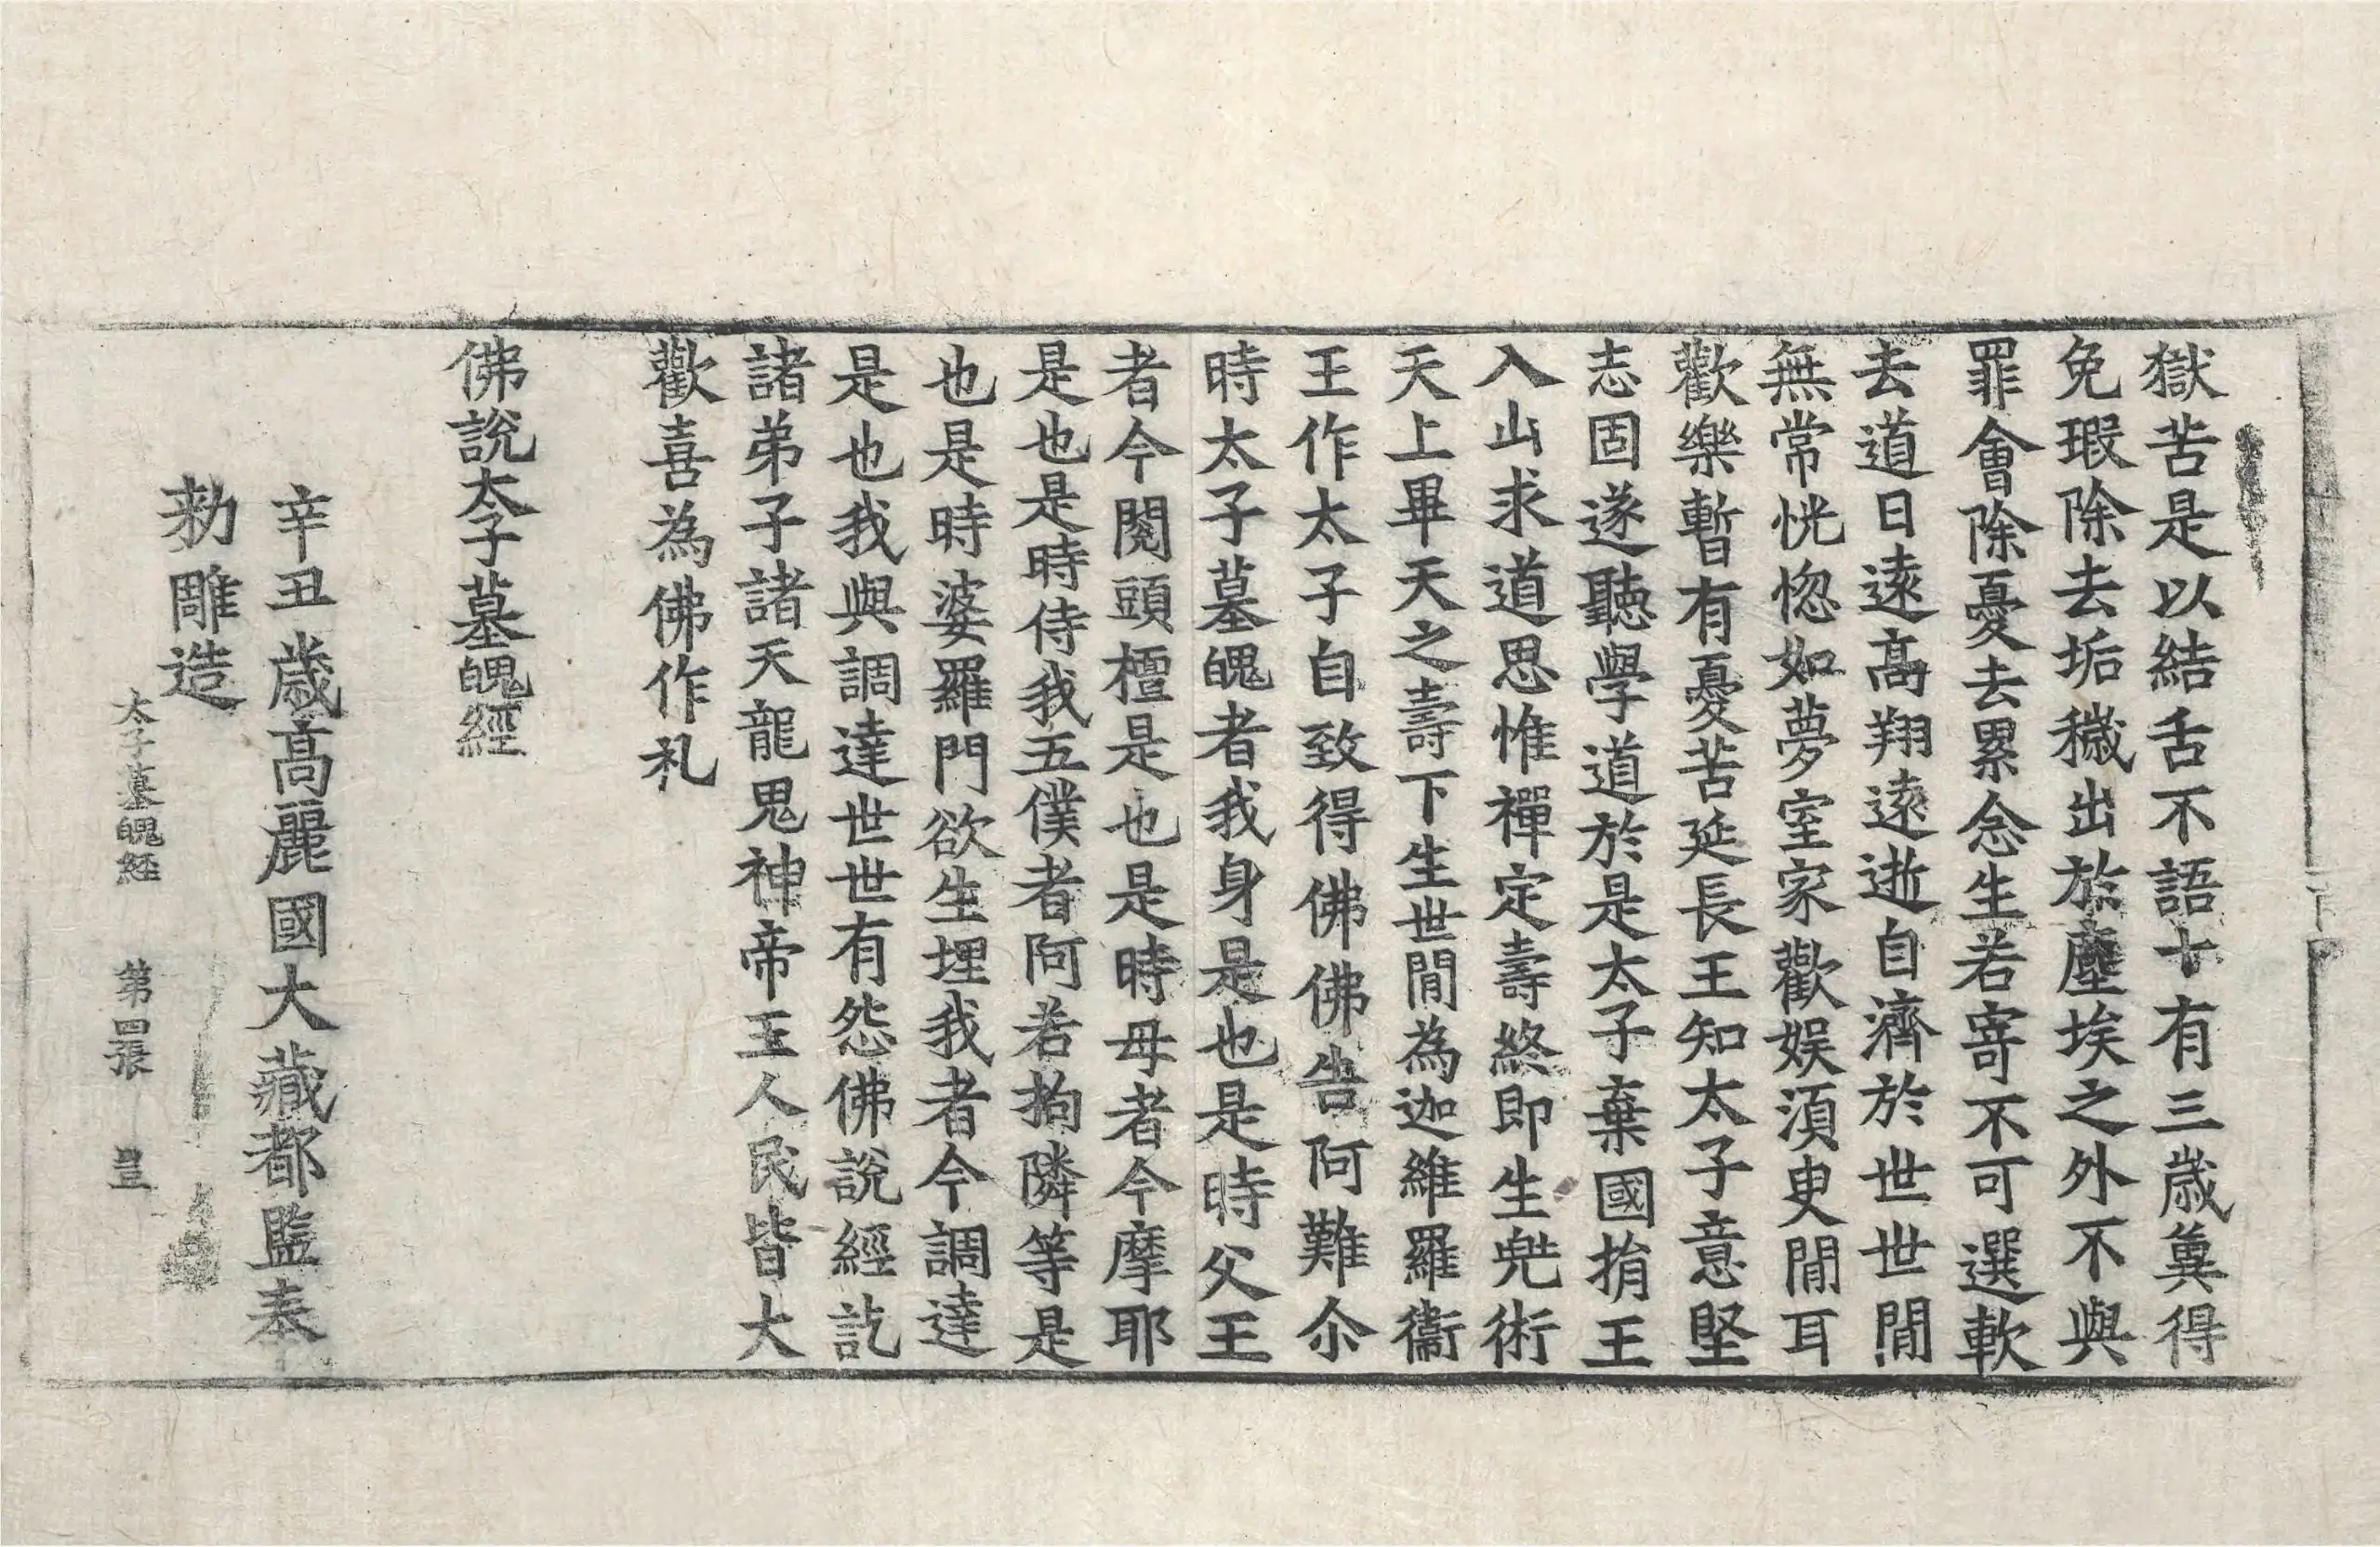 獄苦是以結舌不語十有三歲冀得
免瑕除去垢穢出於塵埃之外不與
罪會除憂去累念生若寄不可選軟
去道日遠高翔遠逝自濟於世世間
無常恍惚如夢室家歡娱須臾間耳
歡樂暫有憂苦延長王知太子意堅
志固遂聽學道於是太子棄國捐王
入山求道思惟禪定壽終即生兠術
天上畢天之壽下生世間為迦維羅衞
王作太子自致得佛佛告阿難尒
時太子墓魄者我身是也是時父王
者今閱頭檀是也是時母者今摩耶
是也是時侍我五僕者阿若拘隣等是
也是時婆羅門欲生埋我者今調達
是也我與調達世世有怨佛說經訖
諸弟子諸天龍鬼神帝王人民皆大
歡喜為佛作礼
佛說太子墓魄經
辛丑歲高麗國大藏都監奉
勑雕造
太子墓魄経 第四張